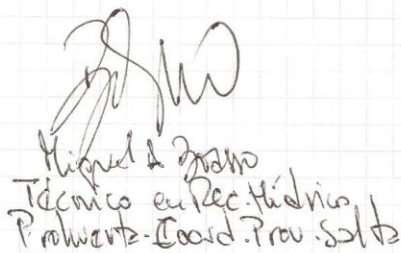 Miguel A Brasso
Técnico en Rec. Hídricos
Prohuerta - Coord. Prov. Salta